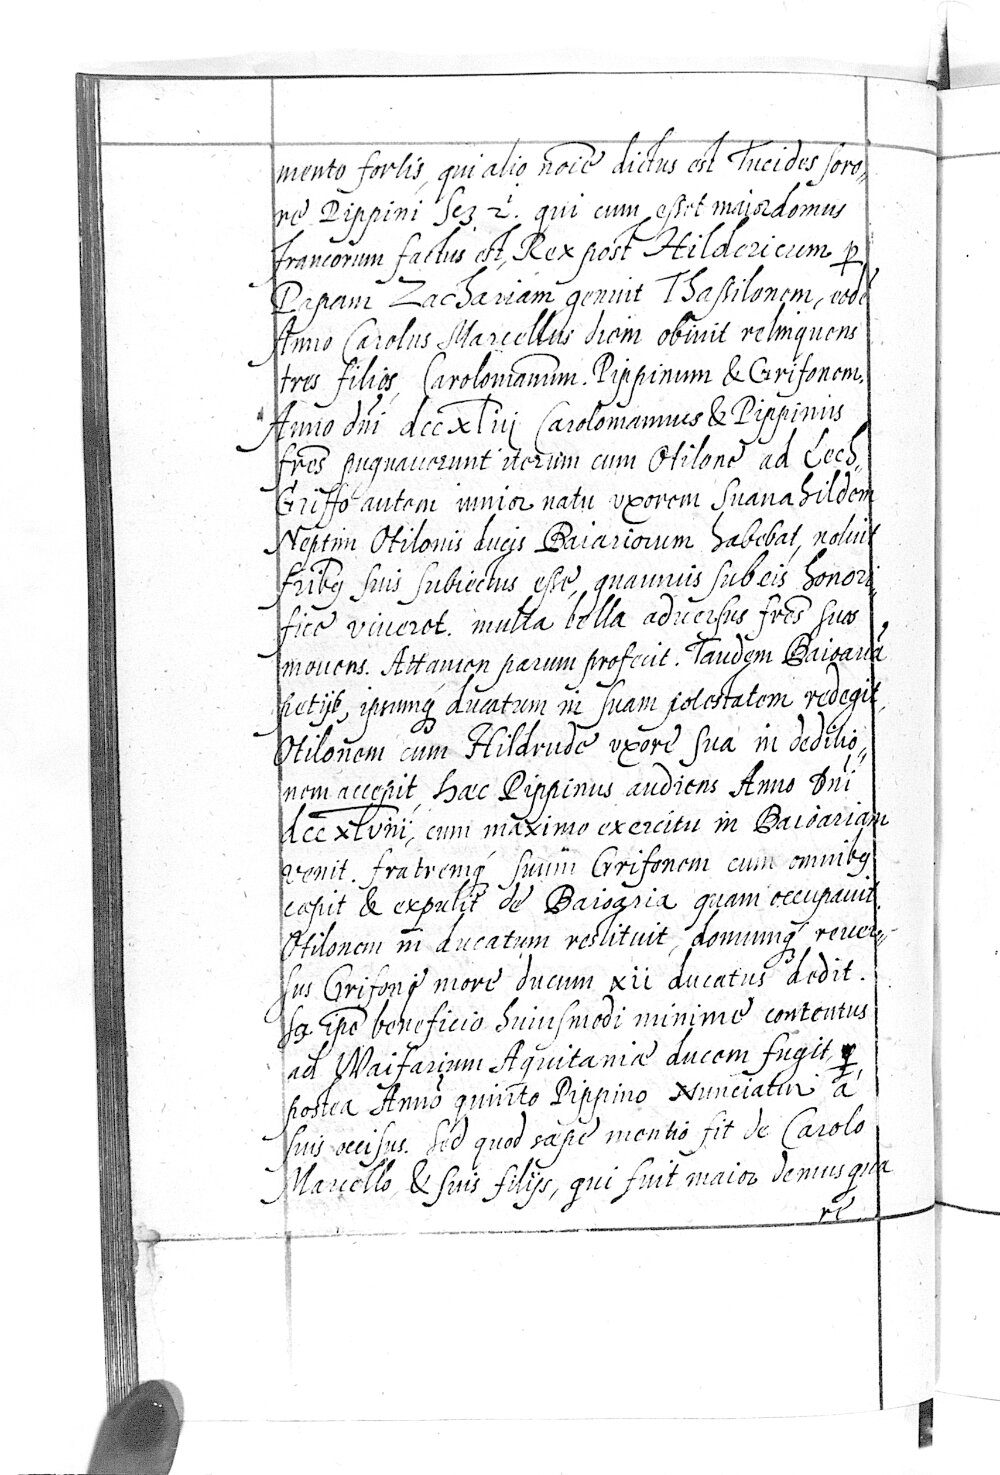 mento fortis, qui alio noīe dictus est Tucides soro,,
re Pippini scz 2i. qui cum esset maior domus
francorum factus est, Rex post Hildericum p
Papam Zachariam genuit Thassilonem, eodē
Anno Carolus Marcellus diem obiuit relinquens
tres filios, Carolomannum. Pippinum & Grifonem.
Anno dni dccxliij Carolomannus & Pippinus
frēs pugnauerunt iterum cum Otilone ad Lech.
Griffo autem iunior natu vxorem Suanahildem
Neptim Otilonis ducis Baiariorum habebat, noluit
fribq suis subiectus esse, quamuis sub eis honori,,
fice viueret. multa bella aduersus frēs suos
mouens. Attamen parum profecit. Tandem Baioariā
petijt, ipsumq ducatum in suam potestatem redegit,
Otilonem cum Hildrude vxore sua in deditio,,
nem accepit, haec Pippinus audiens Anno Dni
dccxlviiij, cum maximo exercitu in Baioariam
venit. fratremq suum Grifonem cum omnibq
capit & expulit de Baiogria quam occupauit.
Otilonem in ducatum restituit, domumq reuer,,
sus Grifoni more ducum xii ducatus dedit.
Sz ipe beneficio huiusmodi minime contentus
ad Waifarium Aquitaniae ducem fugit, q
postea Anno quinto Pippino Nunciatur à
suis occisus. Sed quod saepe mentio fit de Carolo
Marcello, & suis filijs, qui fuit maior domus qua
re